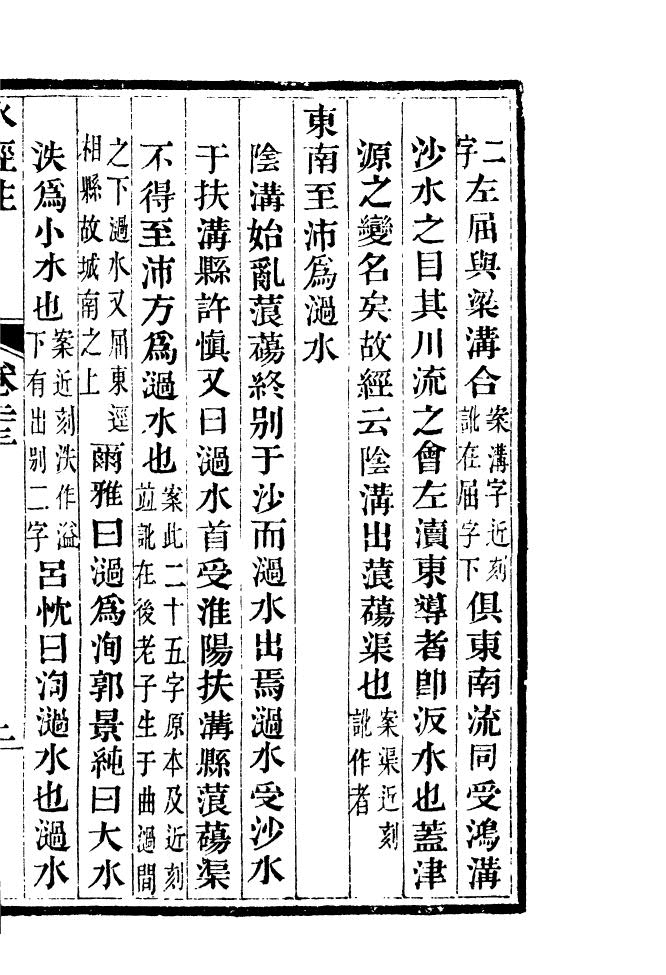 二
字左屈與梁溝合案溝字近刻訛在屈字下俱東南流同受鴻溝
沙水之目其川流之會左瀆東導者即汳水也蓋津
源之變名矣故經云陰溝出蒗蕩渠也案渠近刻訛作者
東南至沛為濄水
陰溝始亂蒗蕩終别于沙而濄水出焉濄水受沙水
于扶溝縣許慎又曰濄水首受淮陽扶溝縣蒗蕩渠
不得至沛方為濄水也案此二十五字原本及近刻並訛在後老子生于曲濄間
之下濄水又屈東逕相縣故城南之上爾雅曰濄為洵郭景純曰大水
泆為小水也案近刻泆作溢下有出别二字呂忱曰洵濄水也濄水
水經注
卷二十三